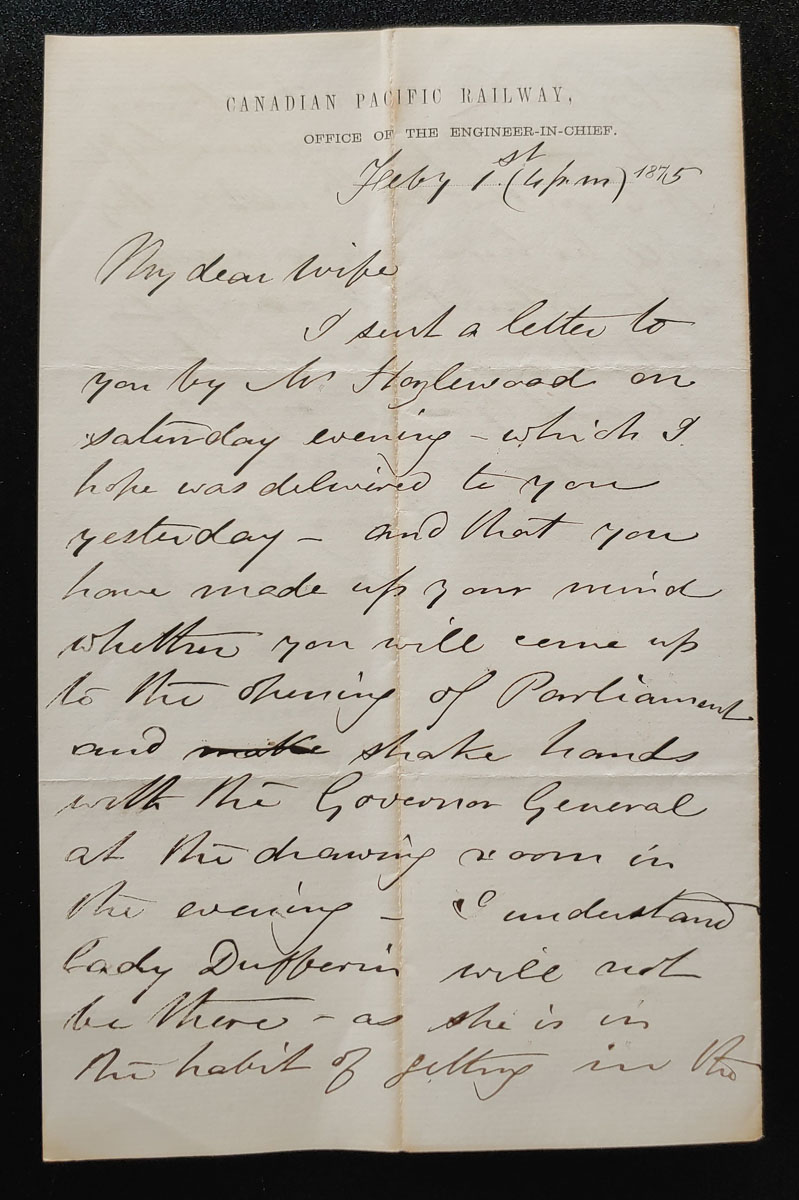 CANADIAN PACIFIC RAILWAY,
OFFICE OF THE ENGINEER-IN-CHIEF.
Feby 1st (4 p.m) 1875
My dear Wife
I sent a letter to
you by Mr Hazlewood on
saturday evening – which I
hope was delivered to you
yesterday – and that you
have made up your mind
whether you will come up
to the opening of Parliament
and make shake hands
with the Governor General
at the drawing room in
the evening – I understand
Lady Dufferin will not
be there – as she is in
the habit of getting in the